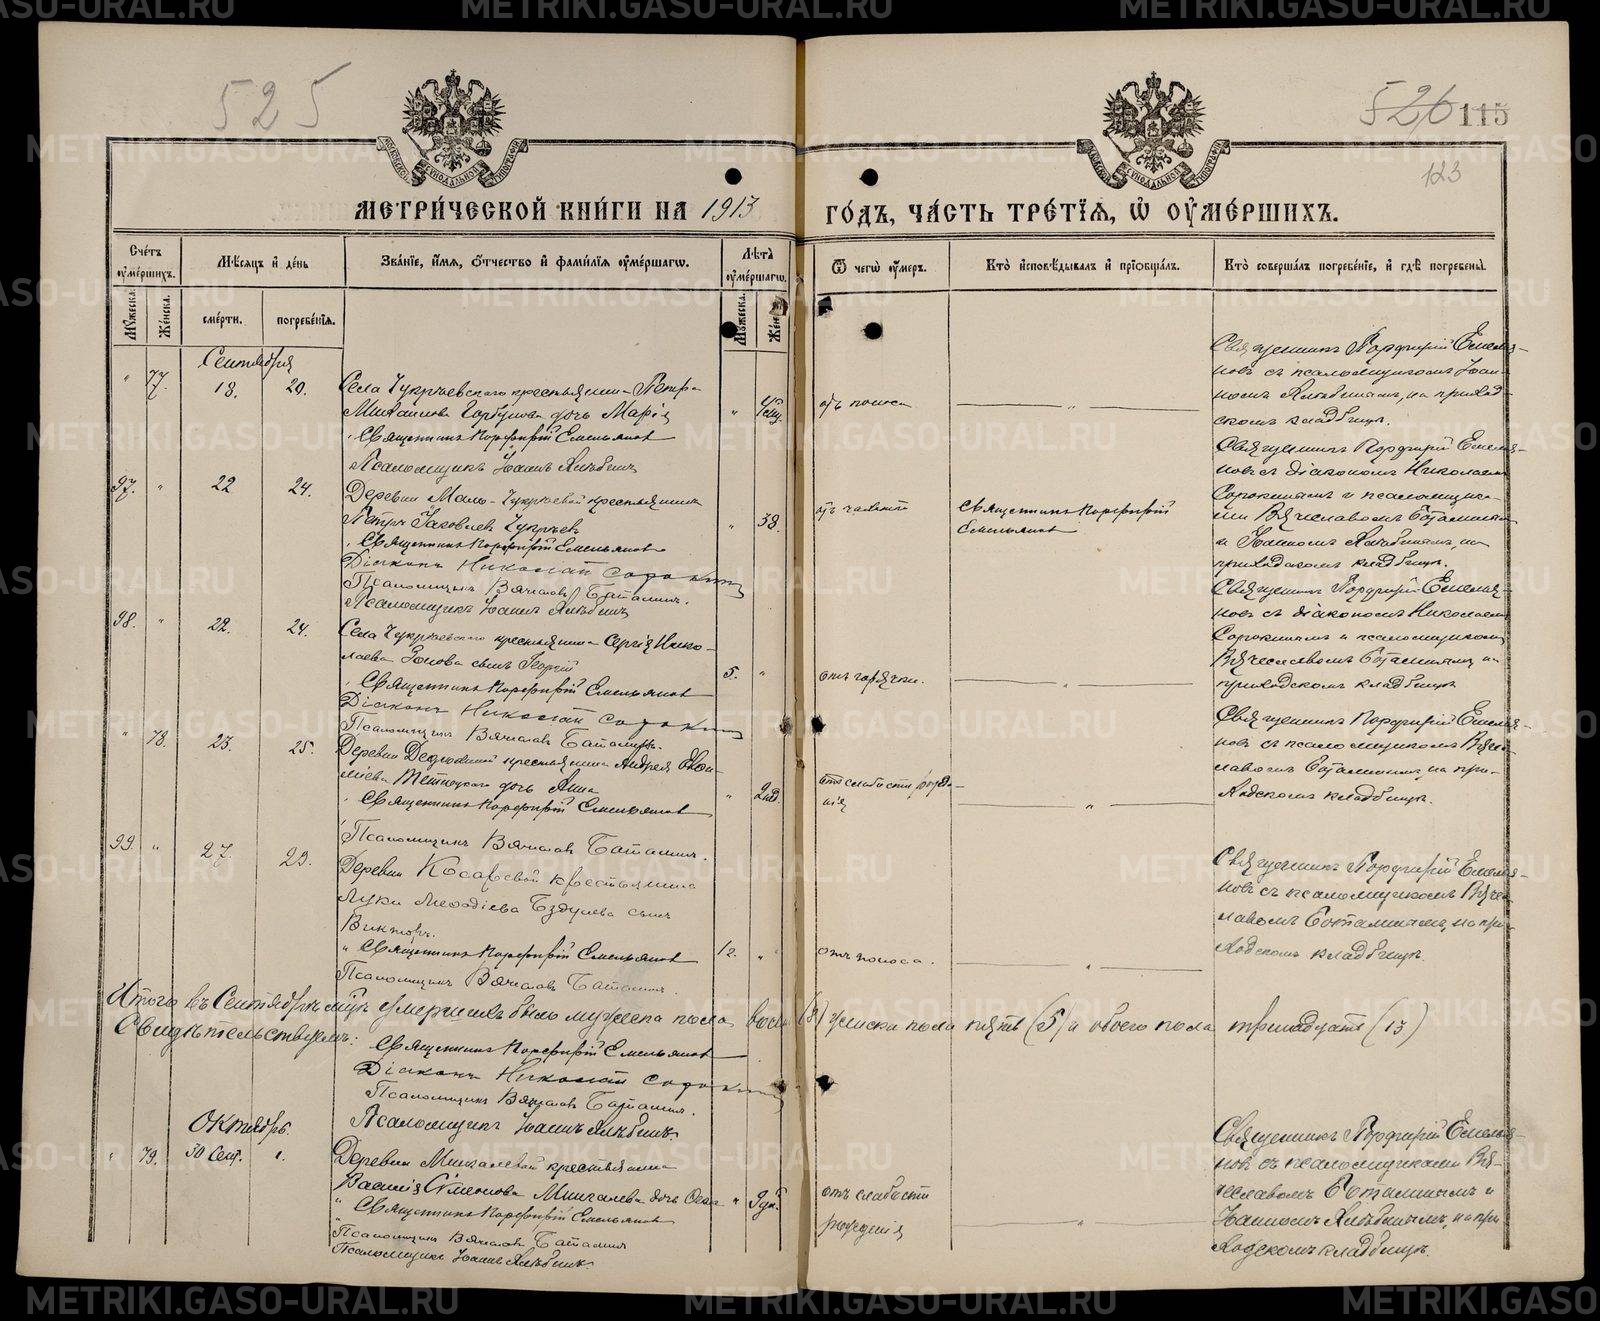 525
526 115
123
МЕТРИ́ЧЕСКОЙ КНИ́ГИ НА 1913
ГО́ДЪ, ЧА́СТЬ ТРЕ́ТІѦ, Ѽ ОУ҆МЕ́РШИХЪ.
Сче́тъ оу҆ме́ршихъ.
Мѣ́сѧцъ и҆ де́нь
Зва́нїе, и҆́мѧ, ѻ҆́тчество и҆ фами́лїѧ оу҆ме́ршагѡ.
Лѣ́та оу҆ме́ршагѡ.
Ѿ чегѡ̀ оу҆́меръ.
Кто̀ и҆сповѣ́дывалъ и҆ прїѡбща́лъ.
Кто̀ соверша́лъ погребе́нїе, и҆ гдѣ̀ погребены̀.
Мꙋ́жеска.
Же́нска.
сме́рти.
погребе́нїѧ.
Мꙋ́жеска.
Же́нска.
Сентября
" 77. 18. 20.
Села Чукреевскаго крестьянина Петра
Михаилова Горбунова дочь Марія
Священникъ Порфирій Емельяновъ
Псаломщикъ Іоаннъ Хлѣбинъ
" отъ поноса "
Священникъ Порфирій Емелья-
новъ съ псаломщикомъ Іоан-
номъ Хлѣбинымъ, на приход-
скомъ кладбищѣ.
97. " 22 24.
Деревни Мало-Чукреевой крестьянинъ
Петръ Яковлевъ Чукреевъ
Священникъ Порфирій Емельяновъ
Діаконъ Николай Сорокинъ
Псаломщикъ Вячеславъ Боталинъ.
Псаломщикъ Іоаннъ Хлѣбинъ
38.
отъ чахотки
Священникъ Порфирій
Емельяновъ
Священникъ Порфирій Емелья-
новъ съ діакономъ Николаемъ
Сорокинымъ и псаломщика-
ми Вячеславомъ Боталинымъ
и Іоанномъ Хлѣбинымъ, на
приходскомъ кладбищѣ.
98. " 22. 24.
Села Чукреевскаго крестьянина Сергія Нико-
лаева Зонова сынъ Георгій
Священникъ Порфирій Емельяновъ
Діаконъ Николай Сорокинъ
Псаломщикъ Вячеславъ Боталинъ.
5. "
отъ горячки. "
Священникъ Порфирій Емелья-
новъ съ діакономъ Николаемъ
Сорокинымъ и псаломщикомъ
Вячеславомъ Боталинымъ на
приходскомъ кладбищѣ
" 78. 23. 25.
крестьянина Андрея
дочь Анна
Священникъ Порфирій Емельяновъ
Псаломщикъ Вячеславъ Боталинъ.
"
отъ слабости рожде-
нія "
Священникъ Порфирій Емелья-
новъ съ псаломщикомъ Вяче-
славомъ Боталинымъ, на при-
ходскомъ кладбищѣ.
99. " 27. 29.
Деревни Косаревой крестьянина
Луки Меѳодіева сынъ
Викторъ.
" Священникъ Порфирій Емельяновъ
Псаломщикъ Вячеславъ Боталинъ.
1/2. "
отъ поноса. "
Священникъ Порфирій Емелья-
новъ съ псаломщикомъ Вяче-
славомъ Боталинымъ, на при-
ходскомъ кладбищѣ.
Итого въ Сентябрѣ мцѣ умершихъ было мужеска пола (8) женска пола пять (5) а обоего пола тринадцать (13)
Свидѣтельствуемъ:
Священникъ Порфирій Емельяновъ
Діаконъ Николай Сорокинъ
Псаломщикъ Вячеславъ Боталинъ.
Псаломщикъ Іоаннъ Хлѣбинъ.
Октябрь.
" 79. 30 Сент. 1.
Деревни крестьянина
Василія Семенова дочь
" Священникъ Порфирій Емельяновъ
Псаломщикъ Вячеславъ Боталинъ
Псаломщикъ Іоаннъ Хлѣбинъ.
" 9 дн.
отъ слабости
рожденія "
Священникъ Порфирій Емелья-
новъ съ псаломщиками Вя-
чеславомъ Боталинымъ и
Іоанномъ Хлѣбинымъ, на при-
ходскомъ кладбищѣ.
METRIKI.GASO-URAL.RU